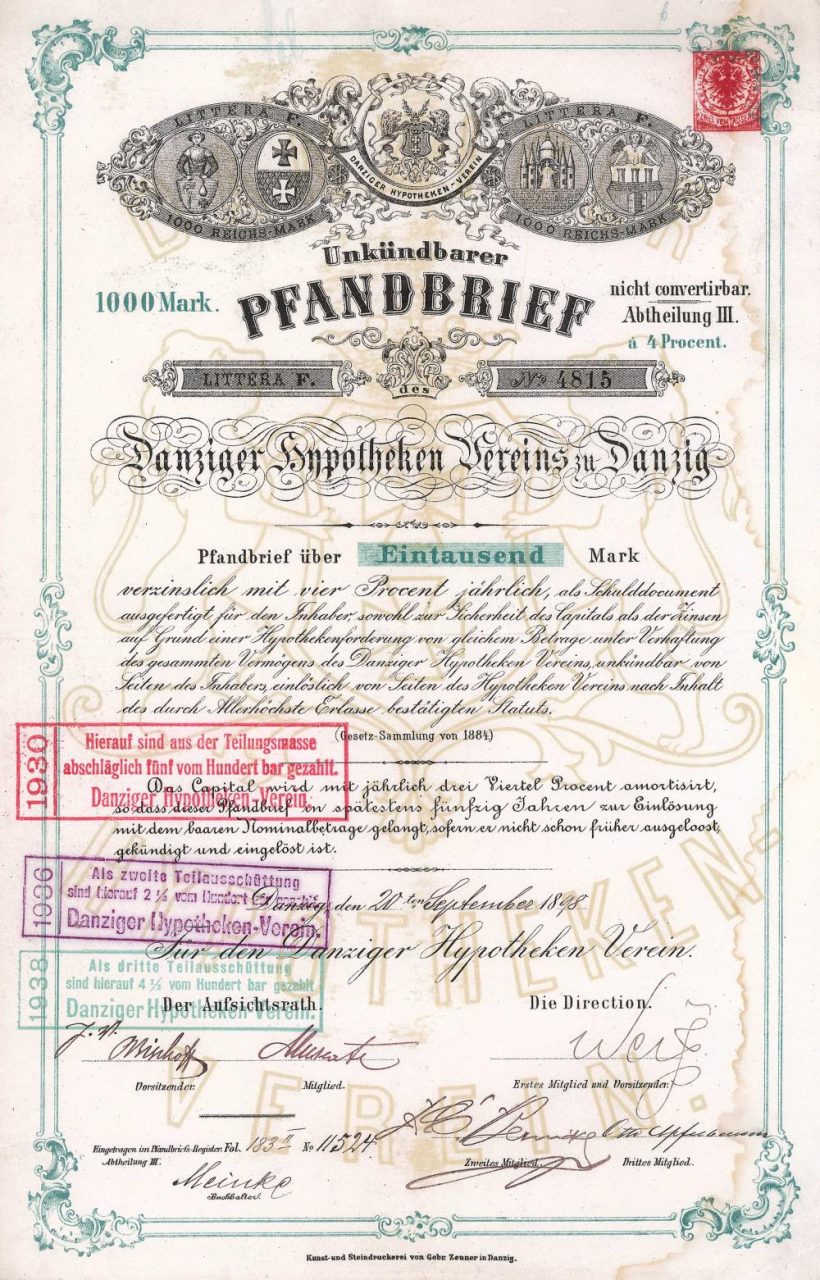 LITTERA F.
1000 REICHS-MARK
DANZIGER HYPOTHEKEN-VEREIN
LITTERA F.
1000 REICHS-MARK
Unkündbarer
1000 Mark.
PFANDBRIEF
nicht convertirbar.
Abtheilung III.
à 4 Procent.
LITTERA F.
des
No 4815
Danziger Hypotheken Vereins zu Danzig
Pfandbrief über Eintausend Mark
verzinslich mit vier Procent jährlich, als Schulddocument
ausgefertigt für den Inhaber, sowohl zur Sicherheit des Capitals als der Zinsen
auf Grund einer Hypothekenforderung von gleichem Betrage unter Verhaftung
des gesammten Vermögens des Danziger Hypotheken Vereins, unkündbar von
Seiten des Inhabers, einlöslich von Seiten des Hypotheken Vereins nach Inhalt
des durch Allerhöchste Erlasse bestätigten Statuts.
(Gesetz-Sammlung von 1884)
1930
Hierauf sind aus der Teilungsmasse
abschläglich fünf vom Hundert bar gezahlt.
Danziger Hypotheken-Verein.
Das Capital wird mit jährlich drei Viertel Procent amortisirt,
so dass dieser Pfandbrief in spätestens fünfzig Jahren zur Einlösung
mit dem baaren Nominalbetrage gelangt, sofern er nicht schon früher ausgeloost,
gekündigt und eingelöst ist.
1936
Als zweite Teilausschüttung
sind hierauf 2 ½ vom Hundert bar gezahlt
Danziger Hypotheken-Verein.
Danzig, den 20ten September 1898
Für den Danziger Hypotheken Verein.
1938
Als dritte Teilausschüttung
sind hierauf 4 ½ vom Hundert bar gezahlt
Danziger Hypotheken-Verein.
Der Aufsichtsrath.
Die Direction.
Vorsitzender.
Mitglied.
Erstes Mitglied und Vorsitzender.
Eingetragen im Pfandbriefs-Register Fol. 183 II No 11524
Abtheilung III.
Zweites Mitglied.
Drittes Mitglied.
Meinke
Buchhalter.
HYPOTHEKEN-
VEREIN.
Kunst- und Steindruckerei von Gebr. Zeuner in Danzig.